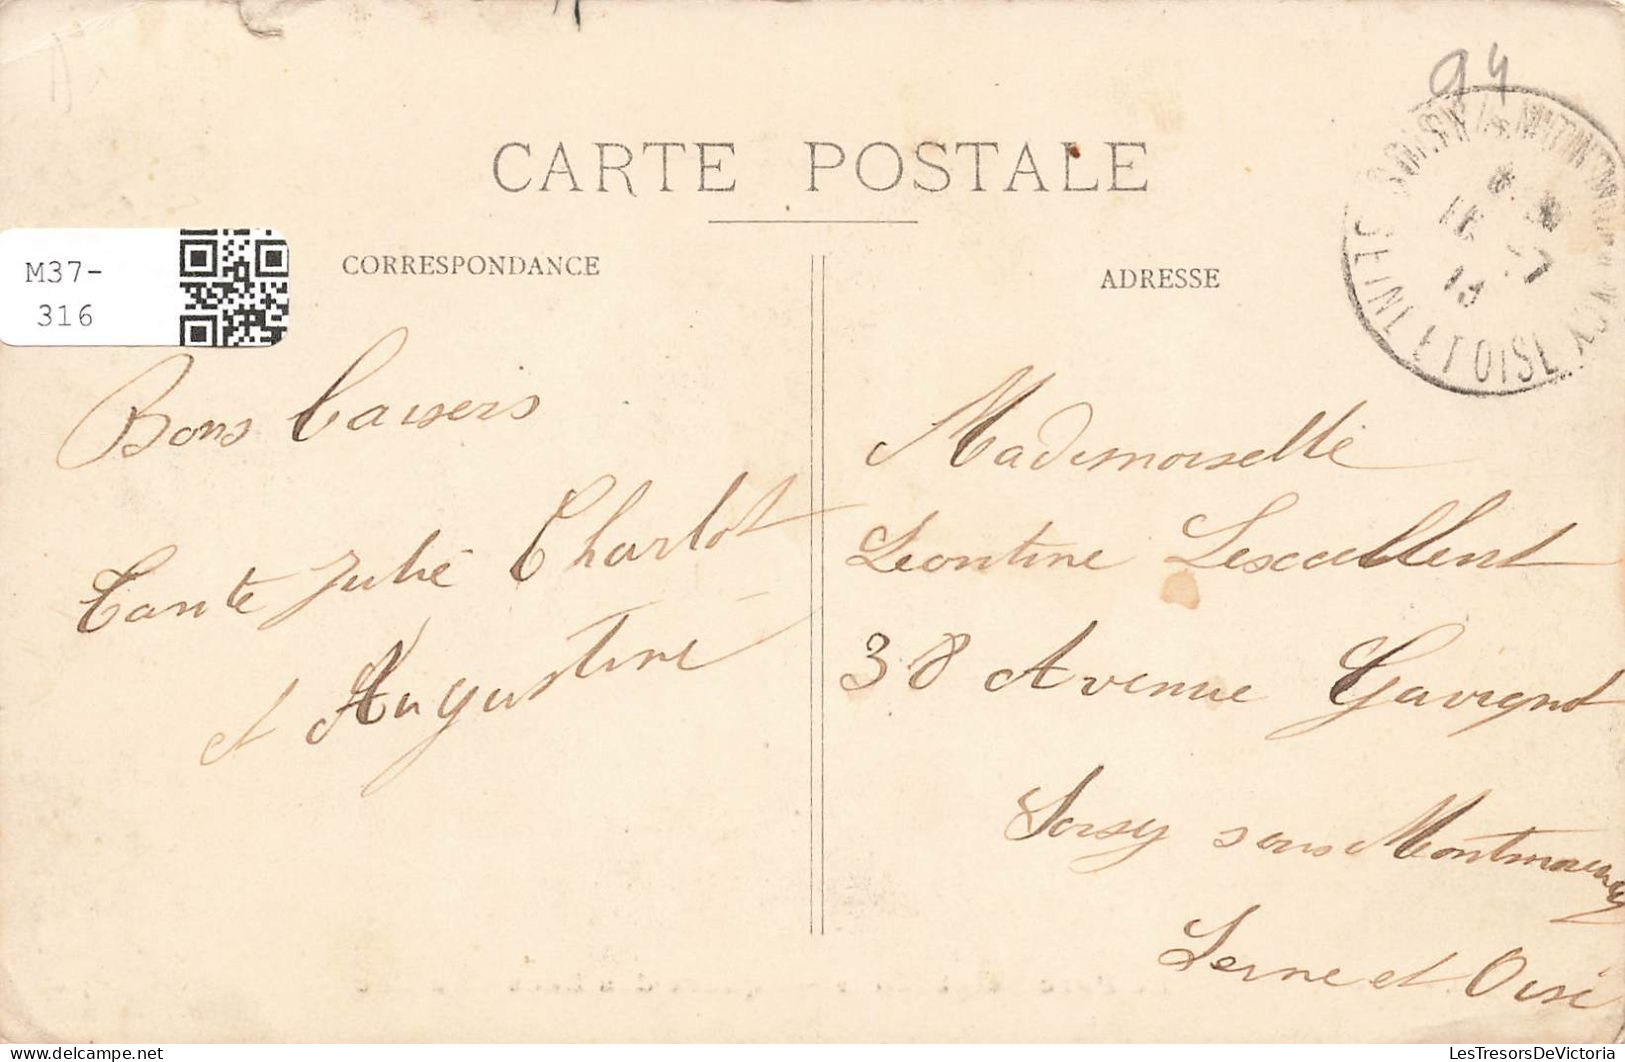 94
CARTE POSTALE
SOISY-Ss-MONTMORENCY
SEINE ET OISE
16 - 7
13
M37-
316
CORRESPONDANCE
ADRESSE
Bons baisers
Tante Julie Charlot
et Augustine
Mademoiselle
Leontine Lescallent
38 Avenue Gavignot
Soisy sous Montmorency
Seine et Oise
LesTresorsDeVictoria